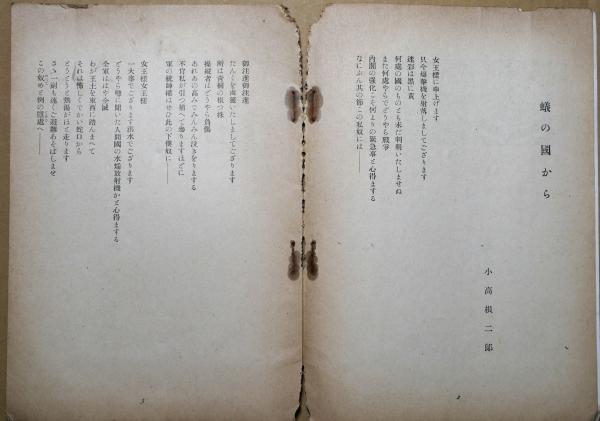 蟻の國から
小高根二郎
女王様に申上げます
只今爆撃機を射落しましてござります
迷彩は黒に黄
何處の國のものとも未だ判明いたしませぬ
また何處やらでどうやら戰爭
內閣の强化こそ何よりの緊急事と心得まする
なにぶん其の節この私奴には――
2
御注進御注進
たんくを鹵獲いたしましてござります
所は靑桐の根つ株
操縱者はどうやら負傷
あれあの高みでみんみん泣きをりまする
不肖私が引つ捕へて參りますほどに
軍の統帥權はぜひ此の下僕奴に――
女王様女王様
一大事でござります洪水でござります
どうやら噂に聞いた人間國の水爆放射機かと心得まする
全軍ははや全滅
わが王土を東西に踏んまへて
それは怖しくでかい蛇口から
とうとうと熱湯がほと走ります
さゝ一刻も速くご避難あそばしませ
この奴めと例の隱處へ――
3